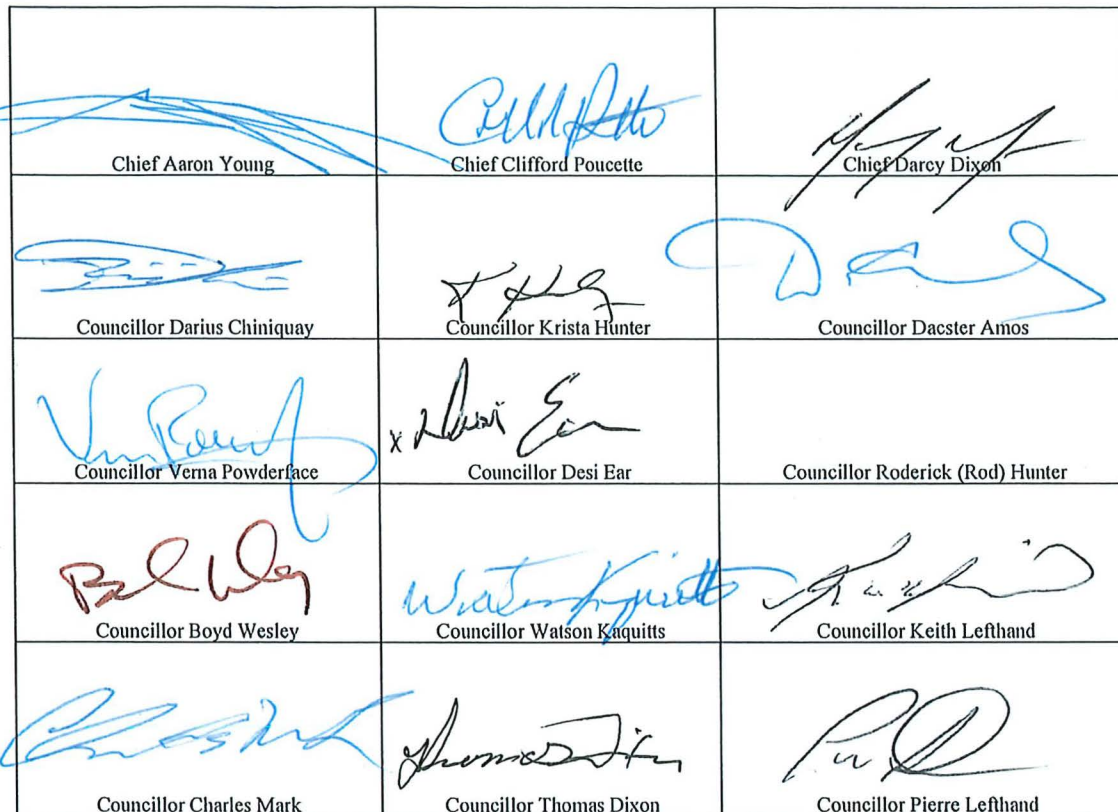 Chief Aaron Young
Chief Clifford Poucette
Chief Darcy Dixon
Councillor Darius Chiniquay
Councillor Krista Hunter
Councillor Dacster Amos
Councillor Verna Powderface
x Desi Ear
Councillor Desi Ear
Councillor Roderick (Rod) Hunter
Councillor Boyd Wesley
Watson Kaquitts
Councillor Watson Kaquitts
Councillor Keith Lefthand
Thomas Dixon
Councillor Charles Mark
Councillor Thomas Dixon
Councillor Pierre Lefthand